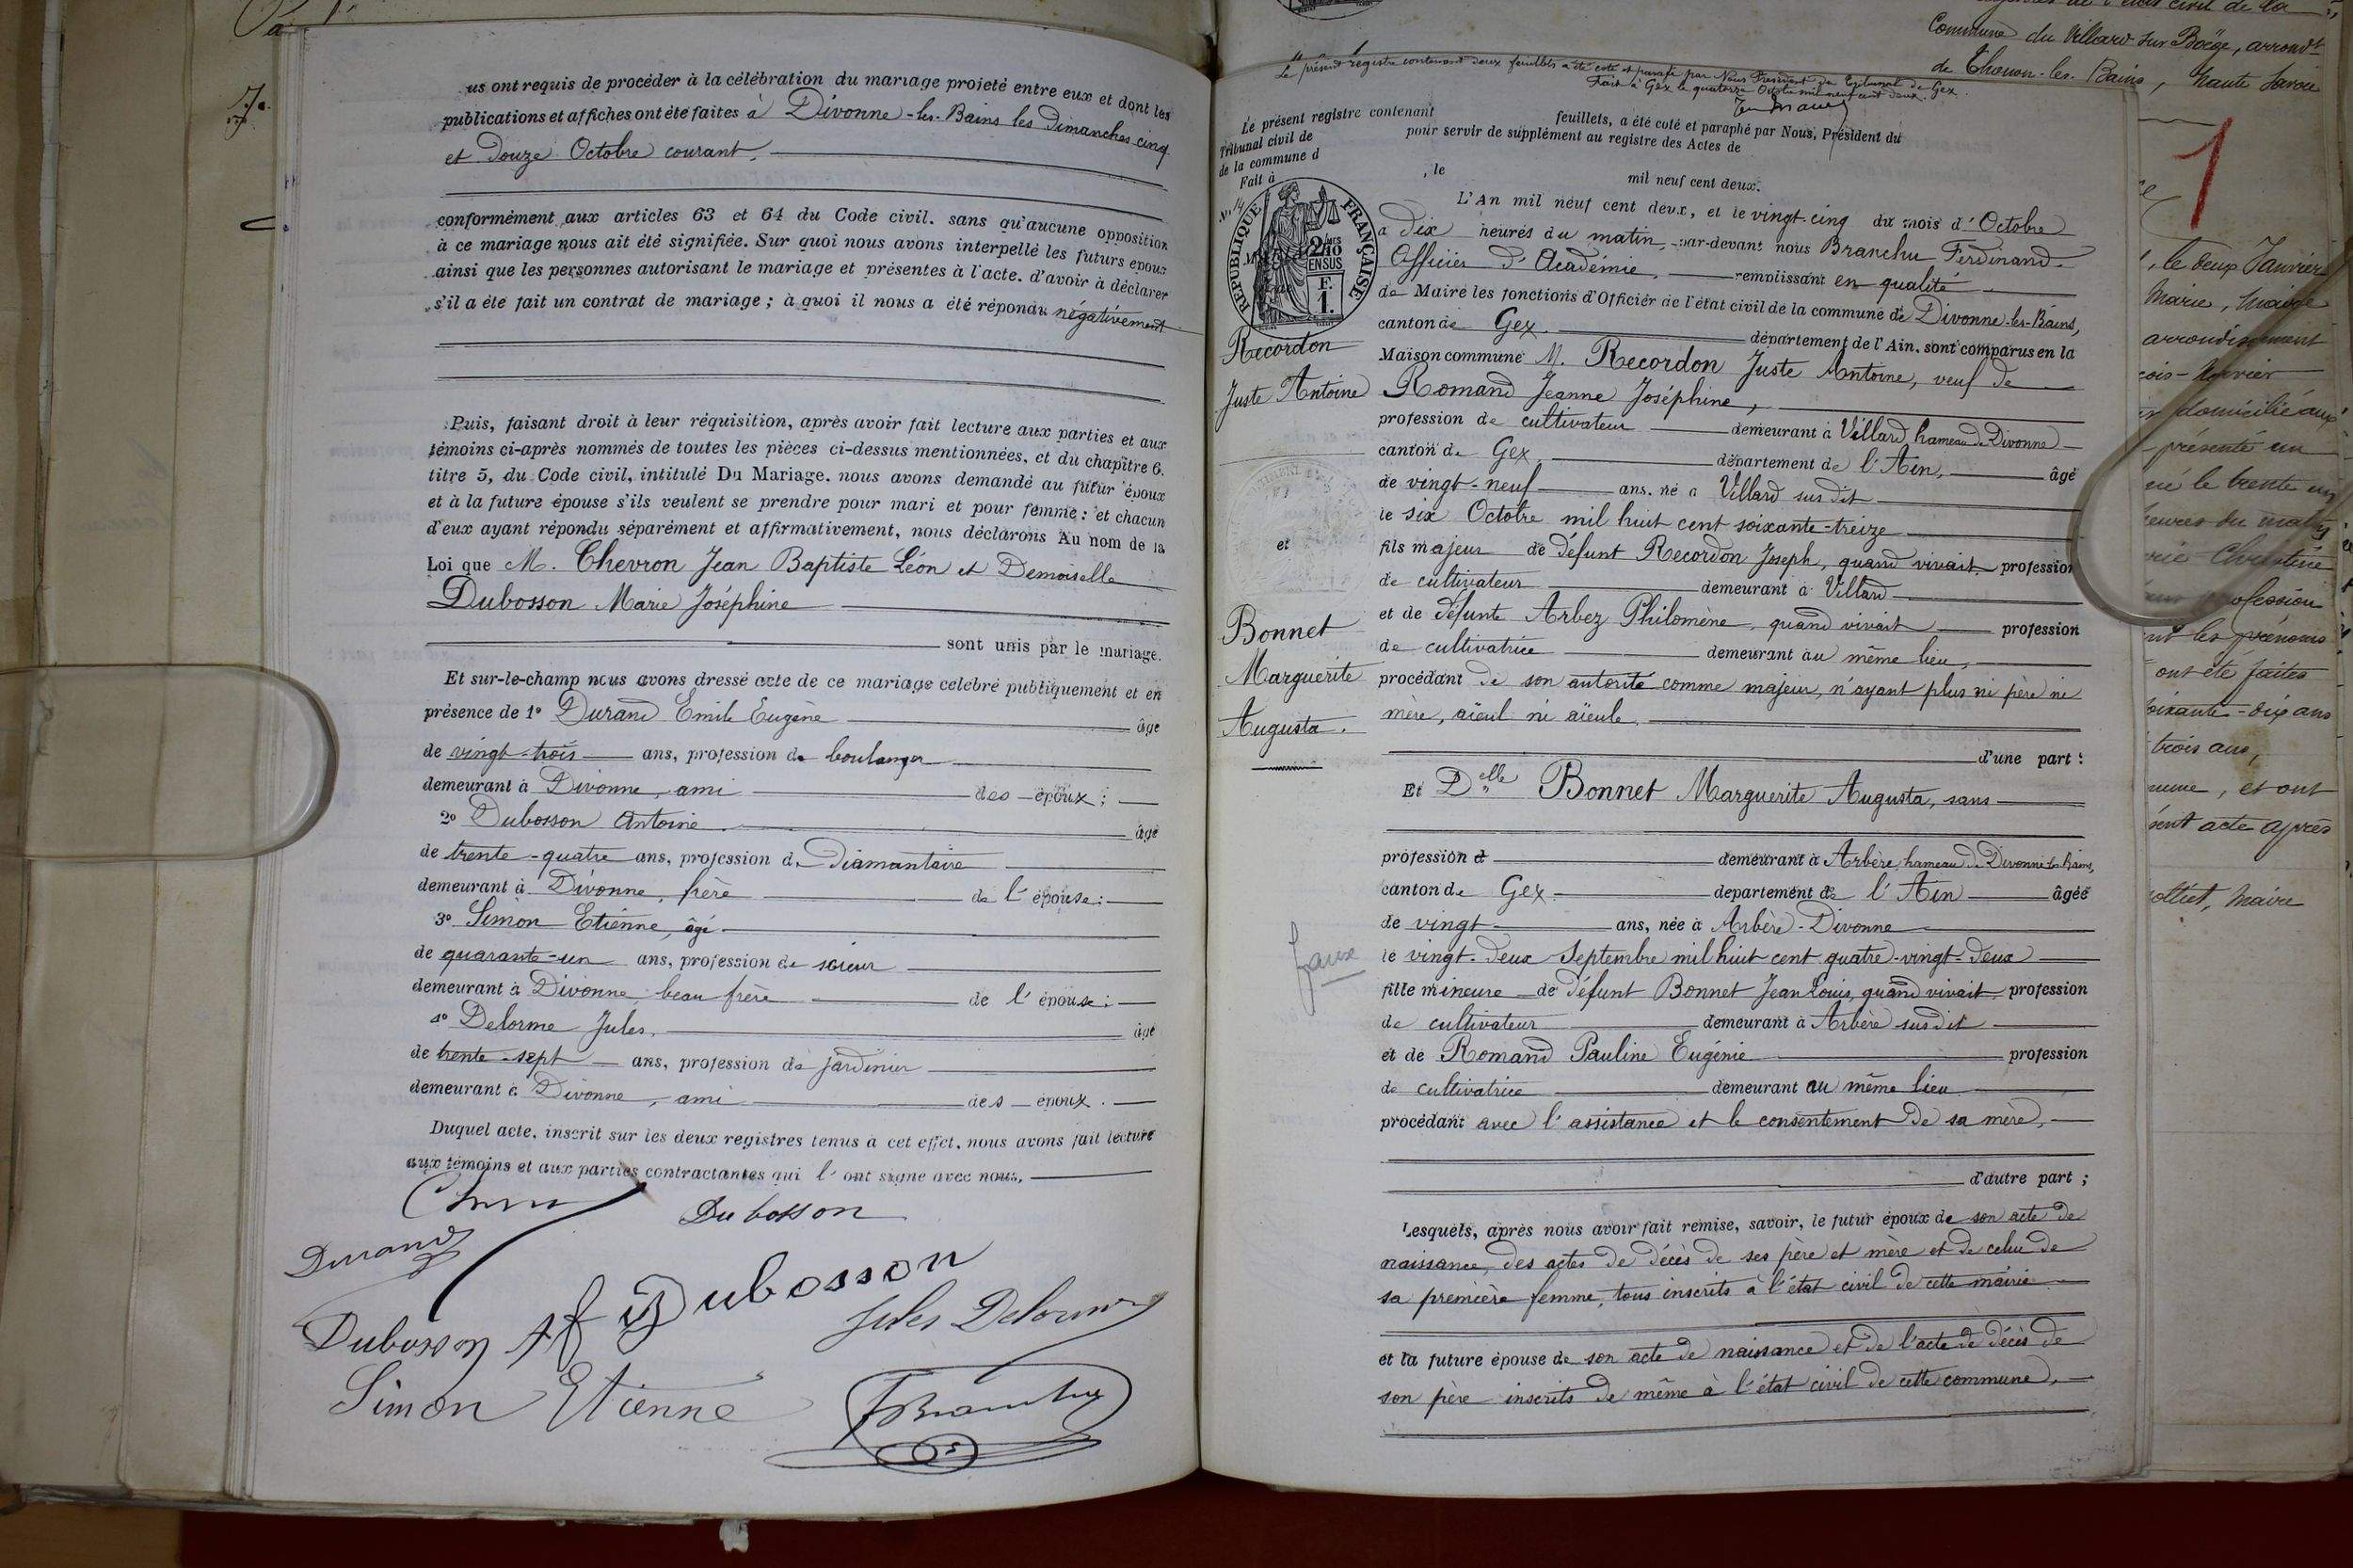 Pa
7e
us ont requis de procéder à la célébration du mariage projeté entre eux et dont les
publications et affiches ont été faites à Divonne-les-Bains les dimanches cinq
et douze Octobre courant.
conformément aux articles 63 et 64 du Code civil. sans qu'aucune opposition
à ce mariage nous ait été signifiée. Sur quoi nous avons interpellé les futurs époux
ainsi que les personnes autorisant le mariage et présentes à l'acte. d'avoir à déclarer
s'il a été fait un contrat de mariage ; à quoi il nous a été répondu négativement
Puis, faisant droit à leur réquisition, après avoir fait lecture aux parties et aux
témoins ci-après nommés de toutes les pièces ci-dessus mentionnées, et du chapitre 6.
titre 5, du Code civil, intitulé Du Mariage. nous avons demandé au futur époux
et à la future épouse s'ils veulent se prendre pour mari et pour femme : et chacun
d'eux ayant répondu séparément et affirmativement, nous déclarons Au nom de la
Loi que M. Chevron Jean Baptiste Léon et Demoiselle
Dubosson Marie Joséphine
sont unis par le mariage.
Et sur-le-champ nous avons dressé acte de ce mariage célébré publiquement et en
présence de 1° Durand Emile Eugène âgé
de vingt-trois ans, profession de boulanger
demeurant à Divonne, ami des époux ;
2° Dubosson Antoine âgé
de trente-quatre ans, profession de Diamantaire
demeurant à Divonne, frère de l'épouse ;
3° Simon Etienne, âgé
de quarante-un ans, profession de scieur
demeurant à Divonne, beau frère de l'épouse ;
4° Delorme Jules, âgé
de trente-sept ans, profession de jardinier
demeurant à Divonne, ami des époux.
Duquel acte, inscrit sur les deux registres tenus à cet effet. nous avons fait lecture
aux témoins et aux parties contractantes qui l'ont signé avec nous.
Dubosson
Durand
Dubosson
Dubosson
Jules Delorme
Simon Etienne
FBranchu
Le présent registre contenant deux feuillets a été coté et parafé par Nous Président du Tribunal de Gex
Fait à Gex le quatorze Octobre mil neuf cent deux.
Le présent registre contenant feuillets, a été coté et paraphé par Nous, Président du
Tribunal civil de pour servir de supplément au registre des Actes de
de la commune d
Fait à , le mil neuf cent deux.
RÉPUBLIQUE FRANÇAISE
2/10 EN SUS
F.
1.
L'An mil neuf cent deux, et le vingt-cinq du mois d'Octobre
à dix heures du matin, par-devant nous Branchu Ferdinand
Officier d'Académie, remplissant en qualité
de Maire les fonctions d'Officier de l'état civil de la commune de Divonne-les-Bains,
canton de Gex département de l'Ain, sont comparus en la
Maison commune M. Recordon Juste Antoine, veuf de
Romand Jeanne Joséphine,
profession de cultivateur demeurant à Villard hameau de Divonne
canton de Gex, département de l'Ain, âgé
de vingt-neuf ans, né à Villard susdit
le six Octobre mil huit cent soixante-treize
fils majeur de défunt Recordon Joseph, quand vivait profession
de cultivateur demeurant à Villard
et de défunte Arbez Philomène, quand vivait profession
de cultivatrice demeurant au même lieu,
procédant de son autorité comme majeur, n'ayant plus ni père ni
mère, aïeul ni aïeule.
d'une part ;
Et Delle Bonnet Marguerite Augusta, sans
profession d demeurant à Arbère hameau de Divonne les Bains,
canton de Gex département de l'Ain âgée
de vingt ans, née à Arbère-Divonne
le vingt-deux Septembre mil huit cent quatre-vingt-deux
fille mineure de défunt Bonnet Jean Louis, quand vivait profession
de cultivateur demeurant à Arbère susdit
et de Romand Pauline Eugénie profession
de cultivatrice demeurant au même lieu
procédant avec l'assistance et le consentement de sa mère,
d'autre part ;
Lesquels, après nous avoir fait remise, savoir, le futur époux de son acte de
naissance, des actes de décès de ses père et mère et de celui de
sa première femme, tous inscrits à l'état civil de cette mairie
et la future épouse de son acte de naissance et de l'acte de décès de
son père inscrits de même à l'état civil de cette commune.
Recordon
Juste Antoine
et
Bonnet
Marguerite
Augusta.
faux
état civil de la
Commune du Villard sur Boëge, arrondt
de Thonon-les-Bains, haute Savoie
1
, le deux Janvier
Marie, Maire
arrondissement
domicilié aux
présenté un
né le trente un
heures du matin
Christine
profession
les prénoms
ont été faites
soixante-dix ans
trois ans,
, et ont
acte après
, Maire